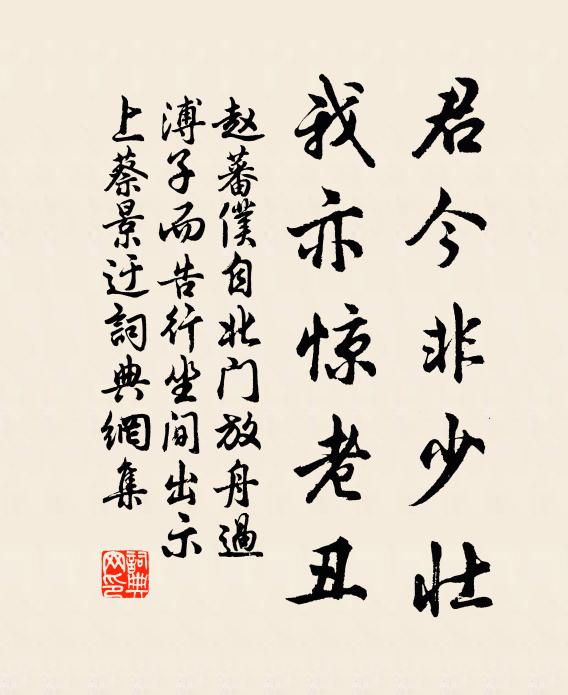 君今非少壮
我亦惊老丑
赵蕃僕自北门放舟過
溥子而告行坐间出示
上蔡景迂詞典網集
詞典网印